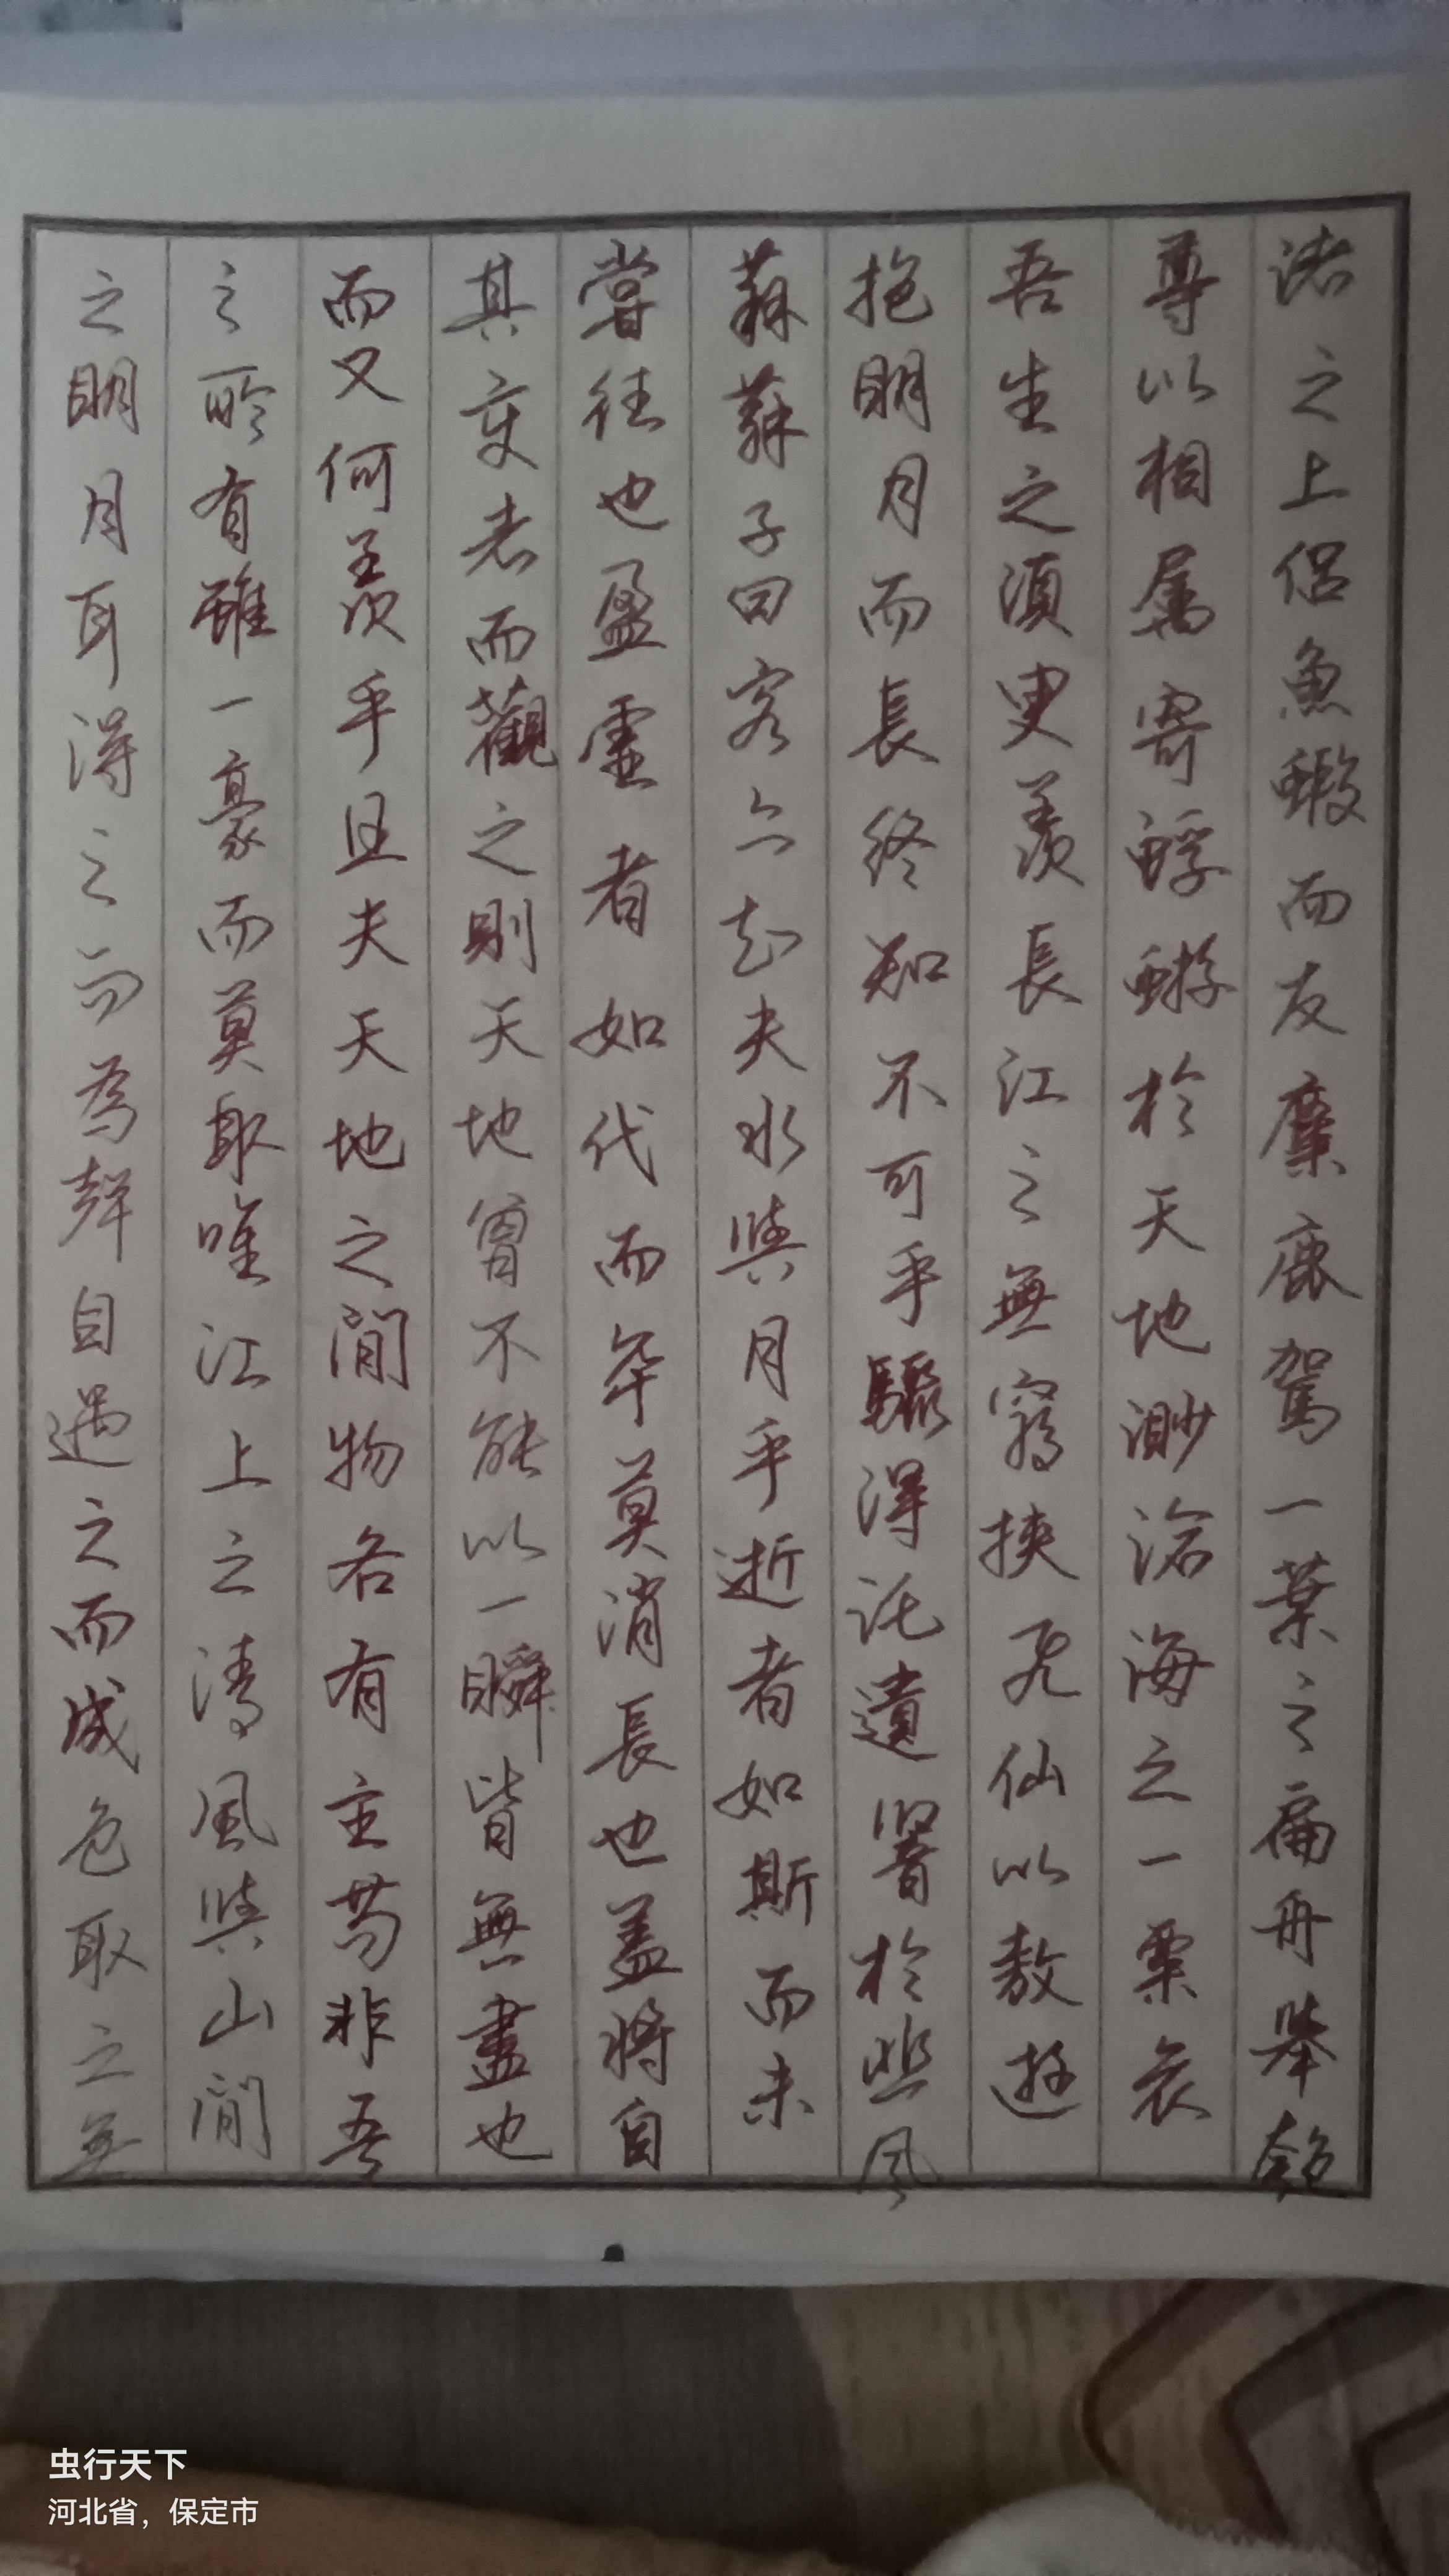 渚之上侶魚蝦而友麋鹿駕一葉之扁舟舉匏
尊以相属寄蜉蝣於天地渺滄海之一粟哀
吾生之須臾羨長江之無窮挾飛仙以敖遊
抱明月而長終知不可乎驟得託遺響於悲風
蘇蘇子曰客亦知夫水與月乎逝者如斯而未
嘗往也盈虛者如代而卒莫消長也蓋將自
其变者而觀之則天地曾不能以一瞬皆無盡也
而又何羨乎且夫天地之間物各有主茍非吾
之所有雖一豪而莫取唯江上之清風與山間
之明月耳得之而為聲自遇之而成色取之無
虫行天下
河北省，保定市